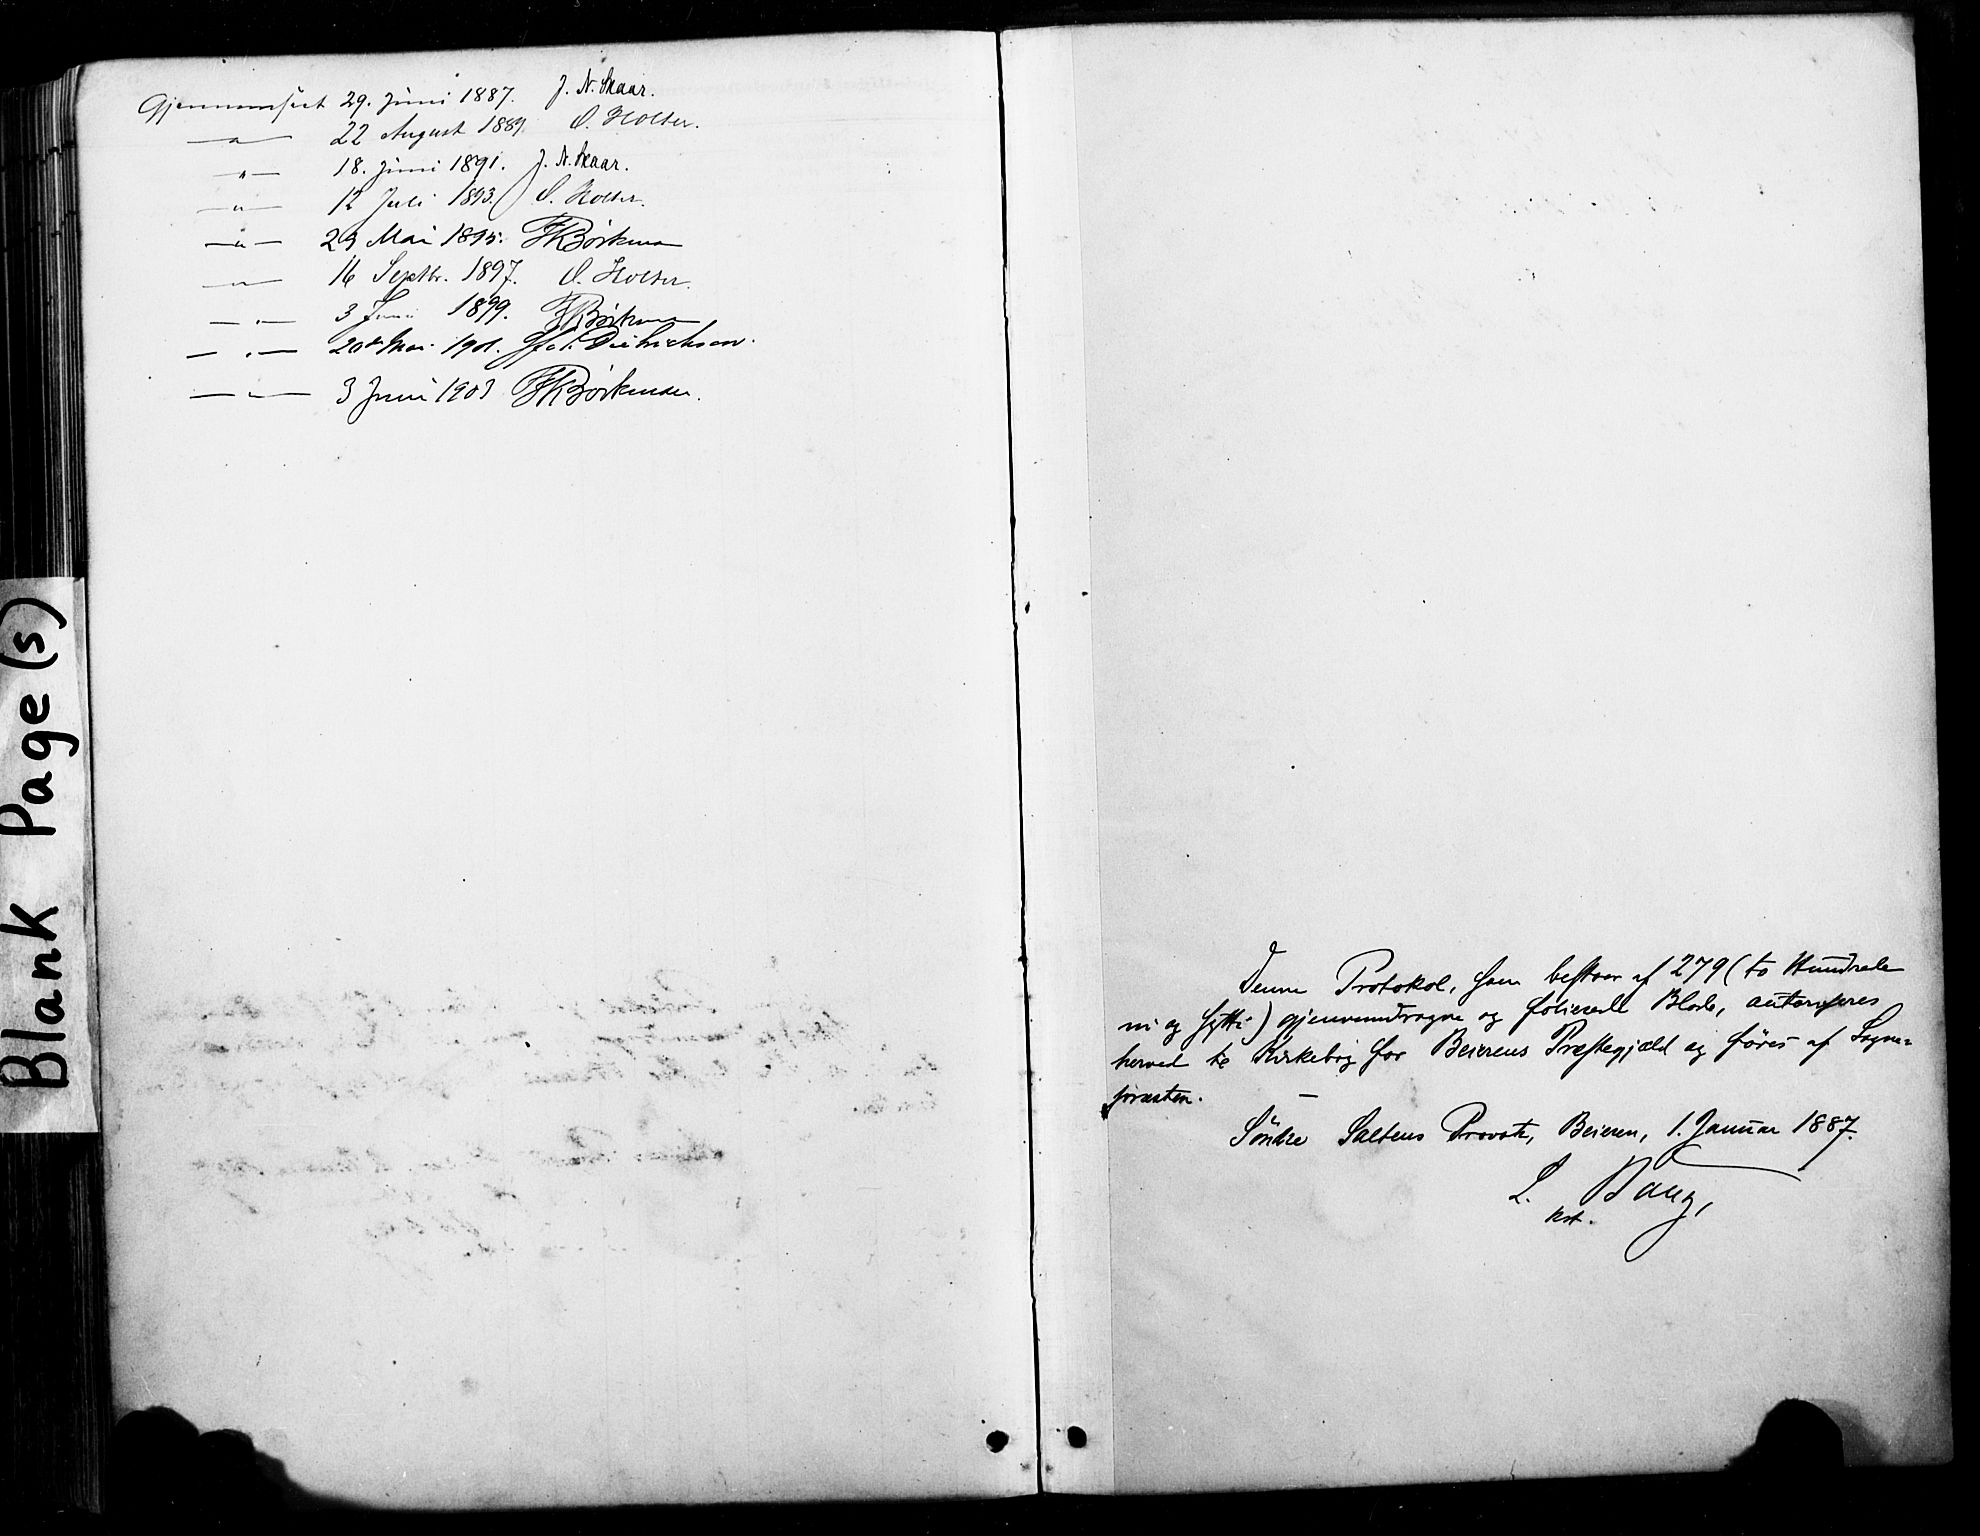 Gjennemseet 29. Juni 1887. J. N. Skaar.
—"— 22 August 1889. O. Holter.
—"— 18. Juni 1891. J. N. Skaar.
—"— 12 Juli 1893. O. Holter.
—"— 23 Mai 1895.
—"— 16 Septbr. 1897. O. Holter.
—"— 3 Juni 1899.
—"— 20de Mai 1901. Dietrichson.
—"— 3 Juni 1903
Blank Page(s)
Denne Protokol, som bestaar af 279 (to Hundrede
ni og sytti) gjennemdragne og folierede Blade, autoriseres
herved til Kirkebog for Beierens Præstegjæld og føres af Sogne-
præsten. —
Søndre Saltens Provsti, Beieren, 1. Januar 1887.
L. Bang,
kst.